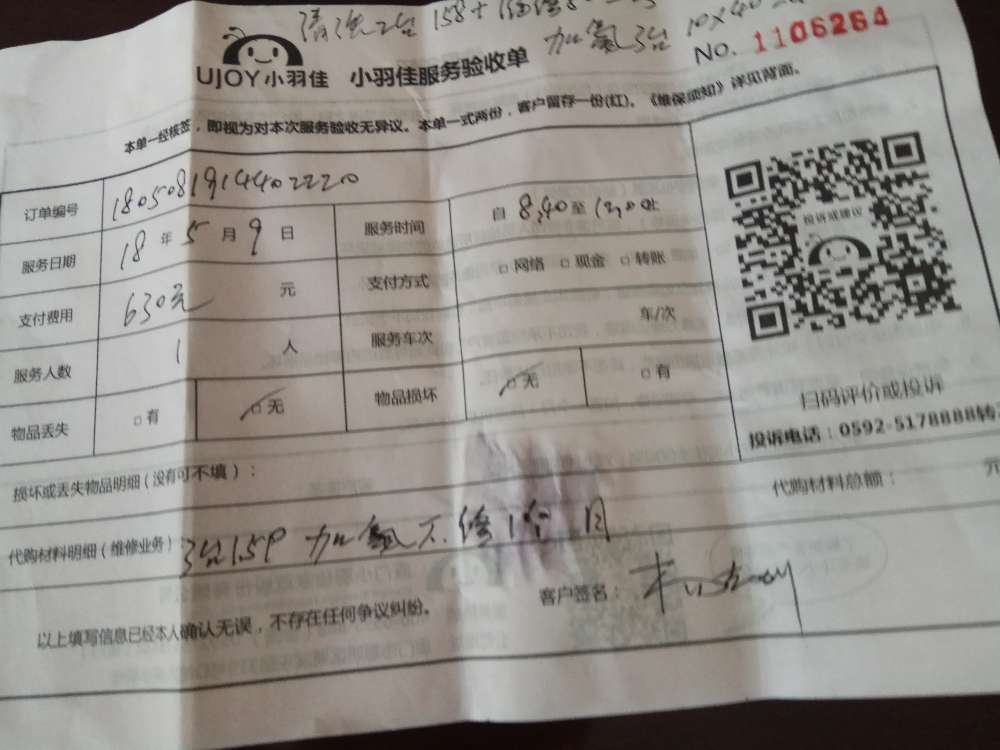 清洗2台 158+
加氟3台 10×40
UJOY小羽佳 小羽佳服务验收单
NO. 1106264
本单一经核签，即视为对本次服务验收无异议。本单一式两份，客户留存一份(红)。《维保须知》详见背面。
订单编号 1805081914402220
服务时间 自 8,40至12,00止
服务日期 18 年 5 月 9 日
支付方式 □ 网络 □ 现金 □ 转账
支付费用 630元 元
服务车次 车/次
服务人数 1 人
物品丢失 □ 有 □ 无
物品损坏 □ 无 □ 有
投诉或建议
扫码评价或投诉
投诉电话：0592-5178888转
损坏或丢失物品明细（没有可不填）：
代购材料总额： 元
代购材料明细（维修业务） 3台1.5P 加氟不修1个月
客户签名：
以上填写信息已经本人确认无误，不存在任何争议纠纷。